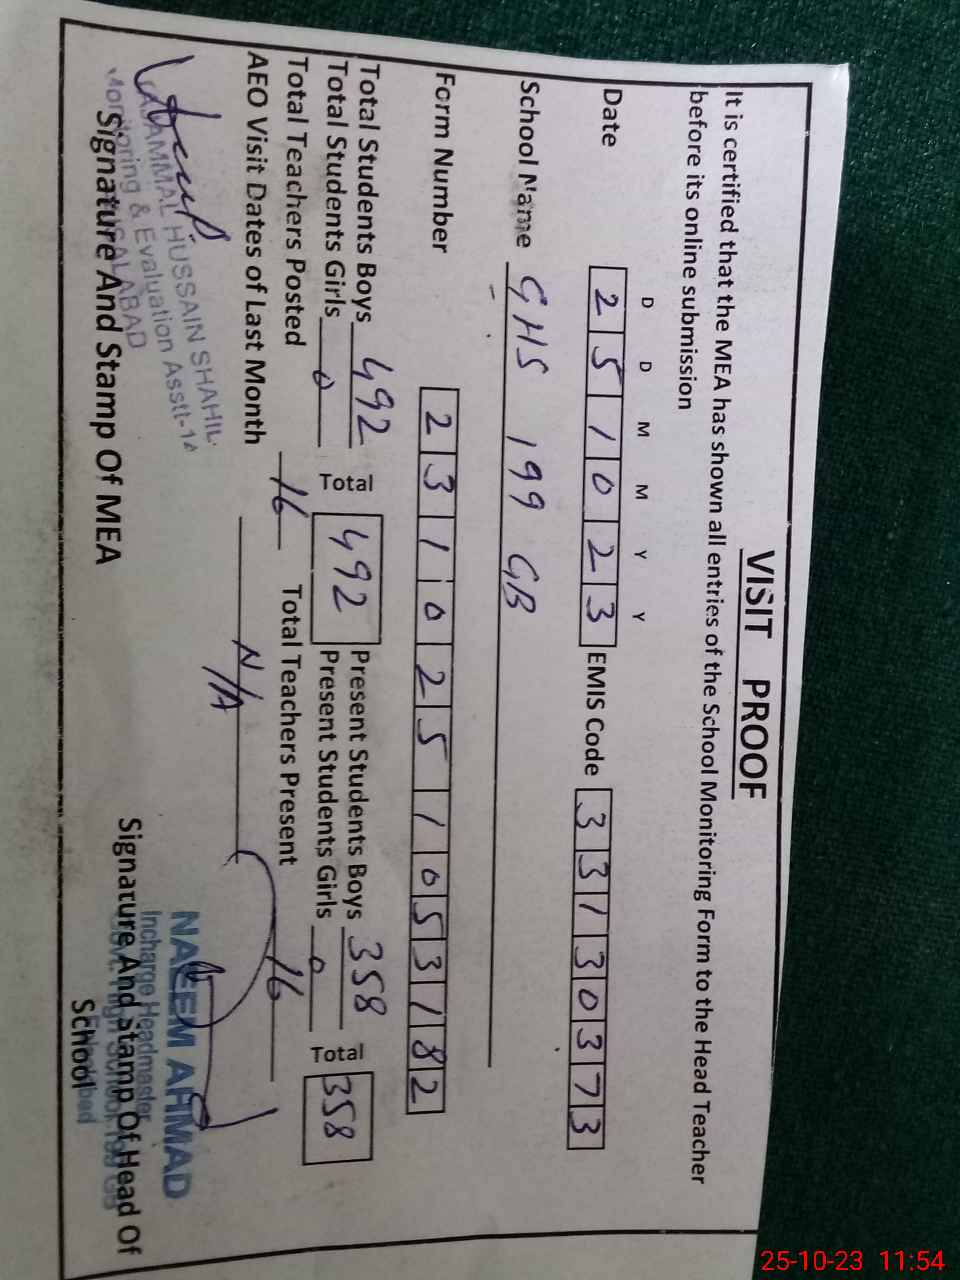 VISIT PROOF
It is certified that the MEA has shown all entries of the School Monitoring Form to the Head Teacher
before its online submission
D D M M Y Y
Date 2 5 1 0 2 3 EMIS Code 3 3 1 3 0 3 7 3
School Name GHS 199 GB
Form Number 2 3 1 0 2 5 1 0 5 3 1 8 2
Total Students Boys 492 Total 492 Present Students Boys 358 Total 358
Total Students Girls 0 Present Students Girls 0
Total Teachers Posted 16 Total Teachers Present 16
AEO Visit Dates of Last Month N/A
HUSSAIN SHAHIL
Monitoring & Evaluation Asstt-1
Signature And Stamp Of MEA
NAEEM AHMAD
Incharge Headmaster
Signature And Stamp Of Head Of
School
25-10-23 11:54